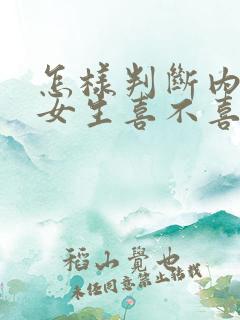 怎样判斷内
女生喜不喜
稻山覺也
未经同意禁止转载